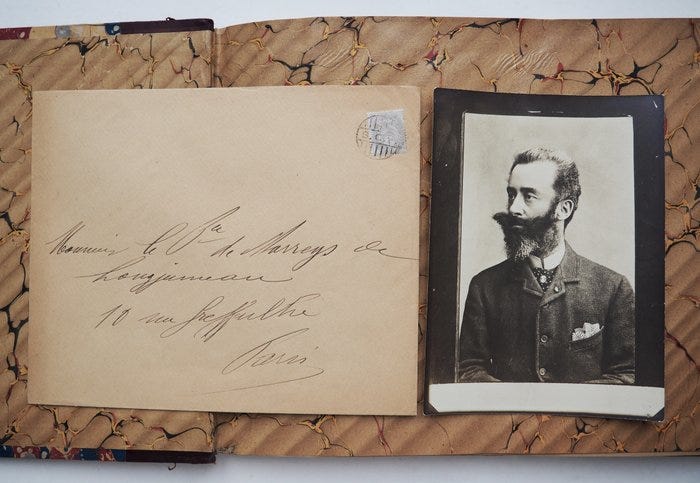 Monsieur le Bon de Marreys de
Longjumeau
10 rue Greffulhe
Paris